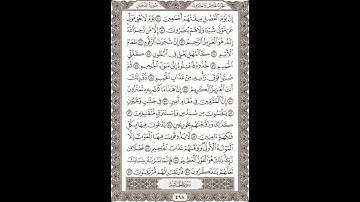 إِنَّ يَوْمَ ٱلْفَصْلِ مِيقَٰتُهُمْ أَجْمَعِينَ ۝ يَوْمَ لَا يُغْنِى مَوْلًى
عَن مَّوْلًى شَيْـًٔا وَلَا هُمْ يُنصَرُونَ ۝ إِلَّا مَن رَّحِمَ ٱللَّهُ
إِنَّهُۥ هُوَ ٱلْعَزِيزُ ٱلرَّحِيمُ ۝ إِنَّ شَجَرَتَ ٱلزَّقُّومِ ۝ طَعَامُ
ٱلْأَثِيمِ ۝ كَٱلْمُهْلِ يَغْلِى فِى ٱلْبُطُونِ ۝ كَغَلْىِ
ٱلْحَمِيمِ ۝ خُذُوهُ فَٱعْتِلُوهُ إِلَىٰ سَوَآءِ ٱلْجَحِيمِ ۝ ثُمَّ
صُبُّوا۟ فَوْقَ رَأْسِهِۦ مِنْ عَذَابِ ٱلْحَمِيمِ ۝ ذُقْ إِنَّكَ
أَنتَ ٱلْعَزِيزُ ٱلْكَرِيمُ ۝ إِنَّ هَٰذَا مَا كُنتُم بِهِۦ تَمْتَرُونَ ۝
إِنَّ ٱلْمُتَّقِينَ فِى مَقَامٍ أَمِينٍ ۝ فِى جَنَّٰتٍ وَعُيُونٍ ۝
يَلْبَسُونَ مِن سُندُسٍ وَإِسْتَبْرَقٍ مُّتَقَٰبِلِينَ ۝
كَذَٰلِكَ وَزَوَّجْنَٰهُم بِحُورٍ عِينٍ ۝ يَدْعُونَ فِيهَا بِكُلِّ
فَٰكِهَةٍ ءَامِنِينَ ۝ لَا يَذُوقُونَ فِيهَا ٱلْمَوْتَ إِلَّا
ٱلْمَوْتَةَ ٱلْأُولَىٰ وَوَقَىٰهُمْ عَذَابَ ٱلْجَحِيمِ ۝ فَضْلًا مِّن
رَّبِّكَ ذَٰلِكَ هُوَ ٱلْفَوْزُ ٱلْعَظِيمُ ۝ فَإِنَّمَا يَسَّرْنَٰهُ بِلِسَانِكَ
لَعَلَّهُمْ يَتَذَكَّرُونَ ۝ فَٱرْتَقِبْ إِنَّهُم مُّرْتَقِبُونَ ۝
٤٩٨